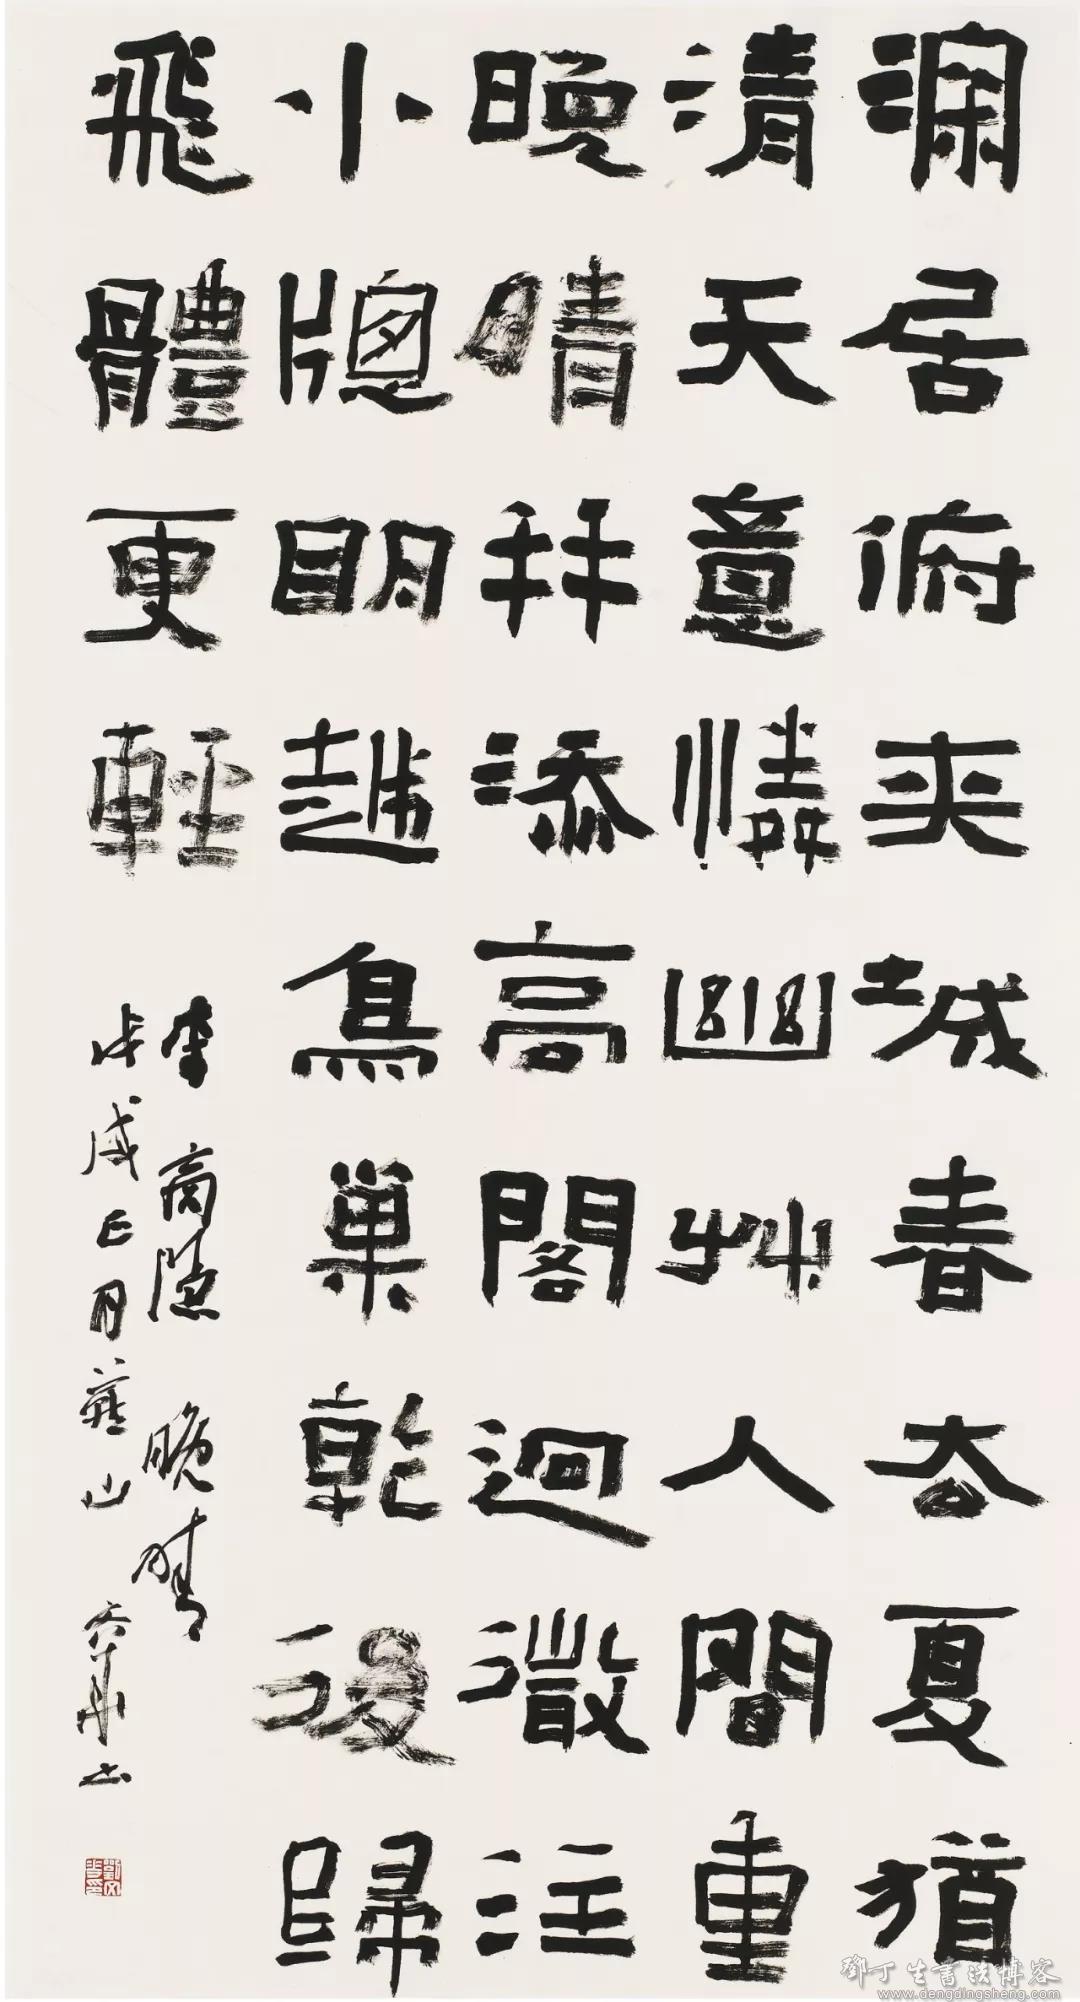 深居俯夾城春去夏猶
清天意憐幽艸人間重
晚晴并添高閣迥微注
小牕明越鳥巢乾後歸
飛體更輕
李商隱 晚晴
戊戌正月燕山 文華书
劉文華印
鄧丁生書法博客
www.dengdingsheng.com